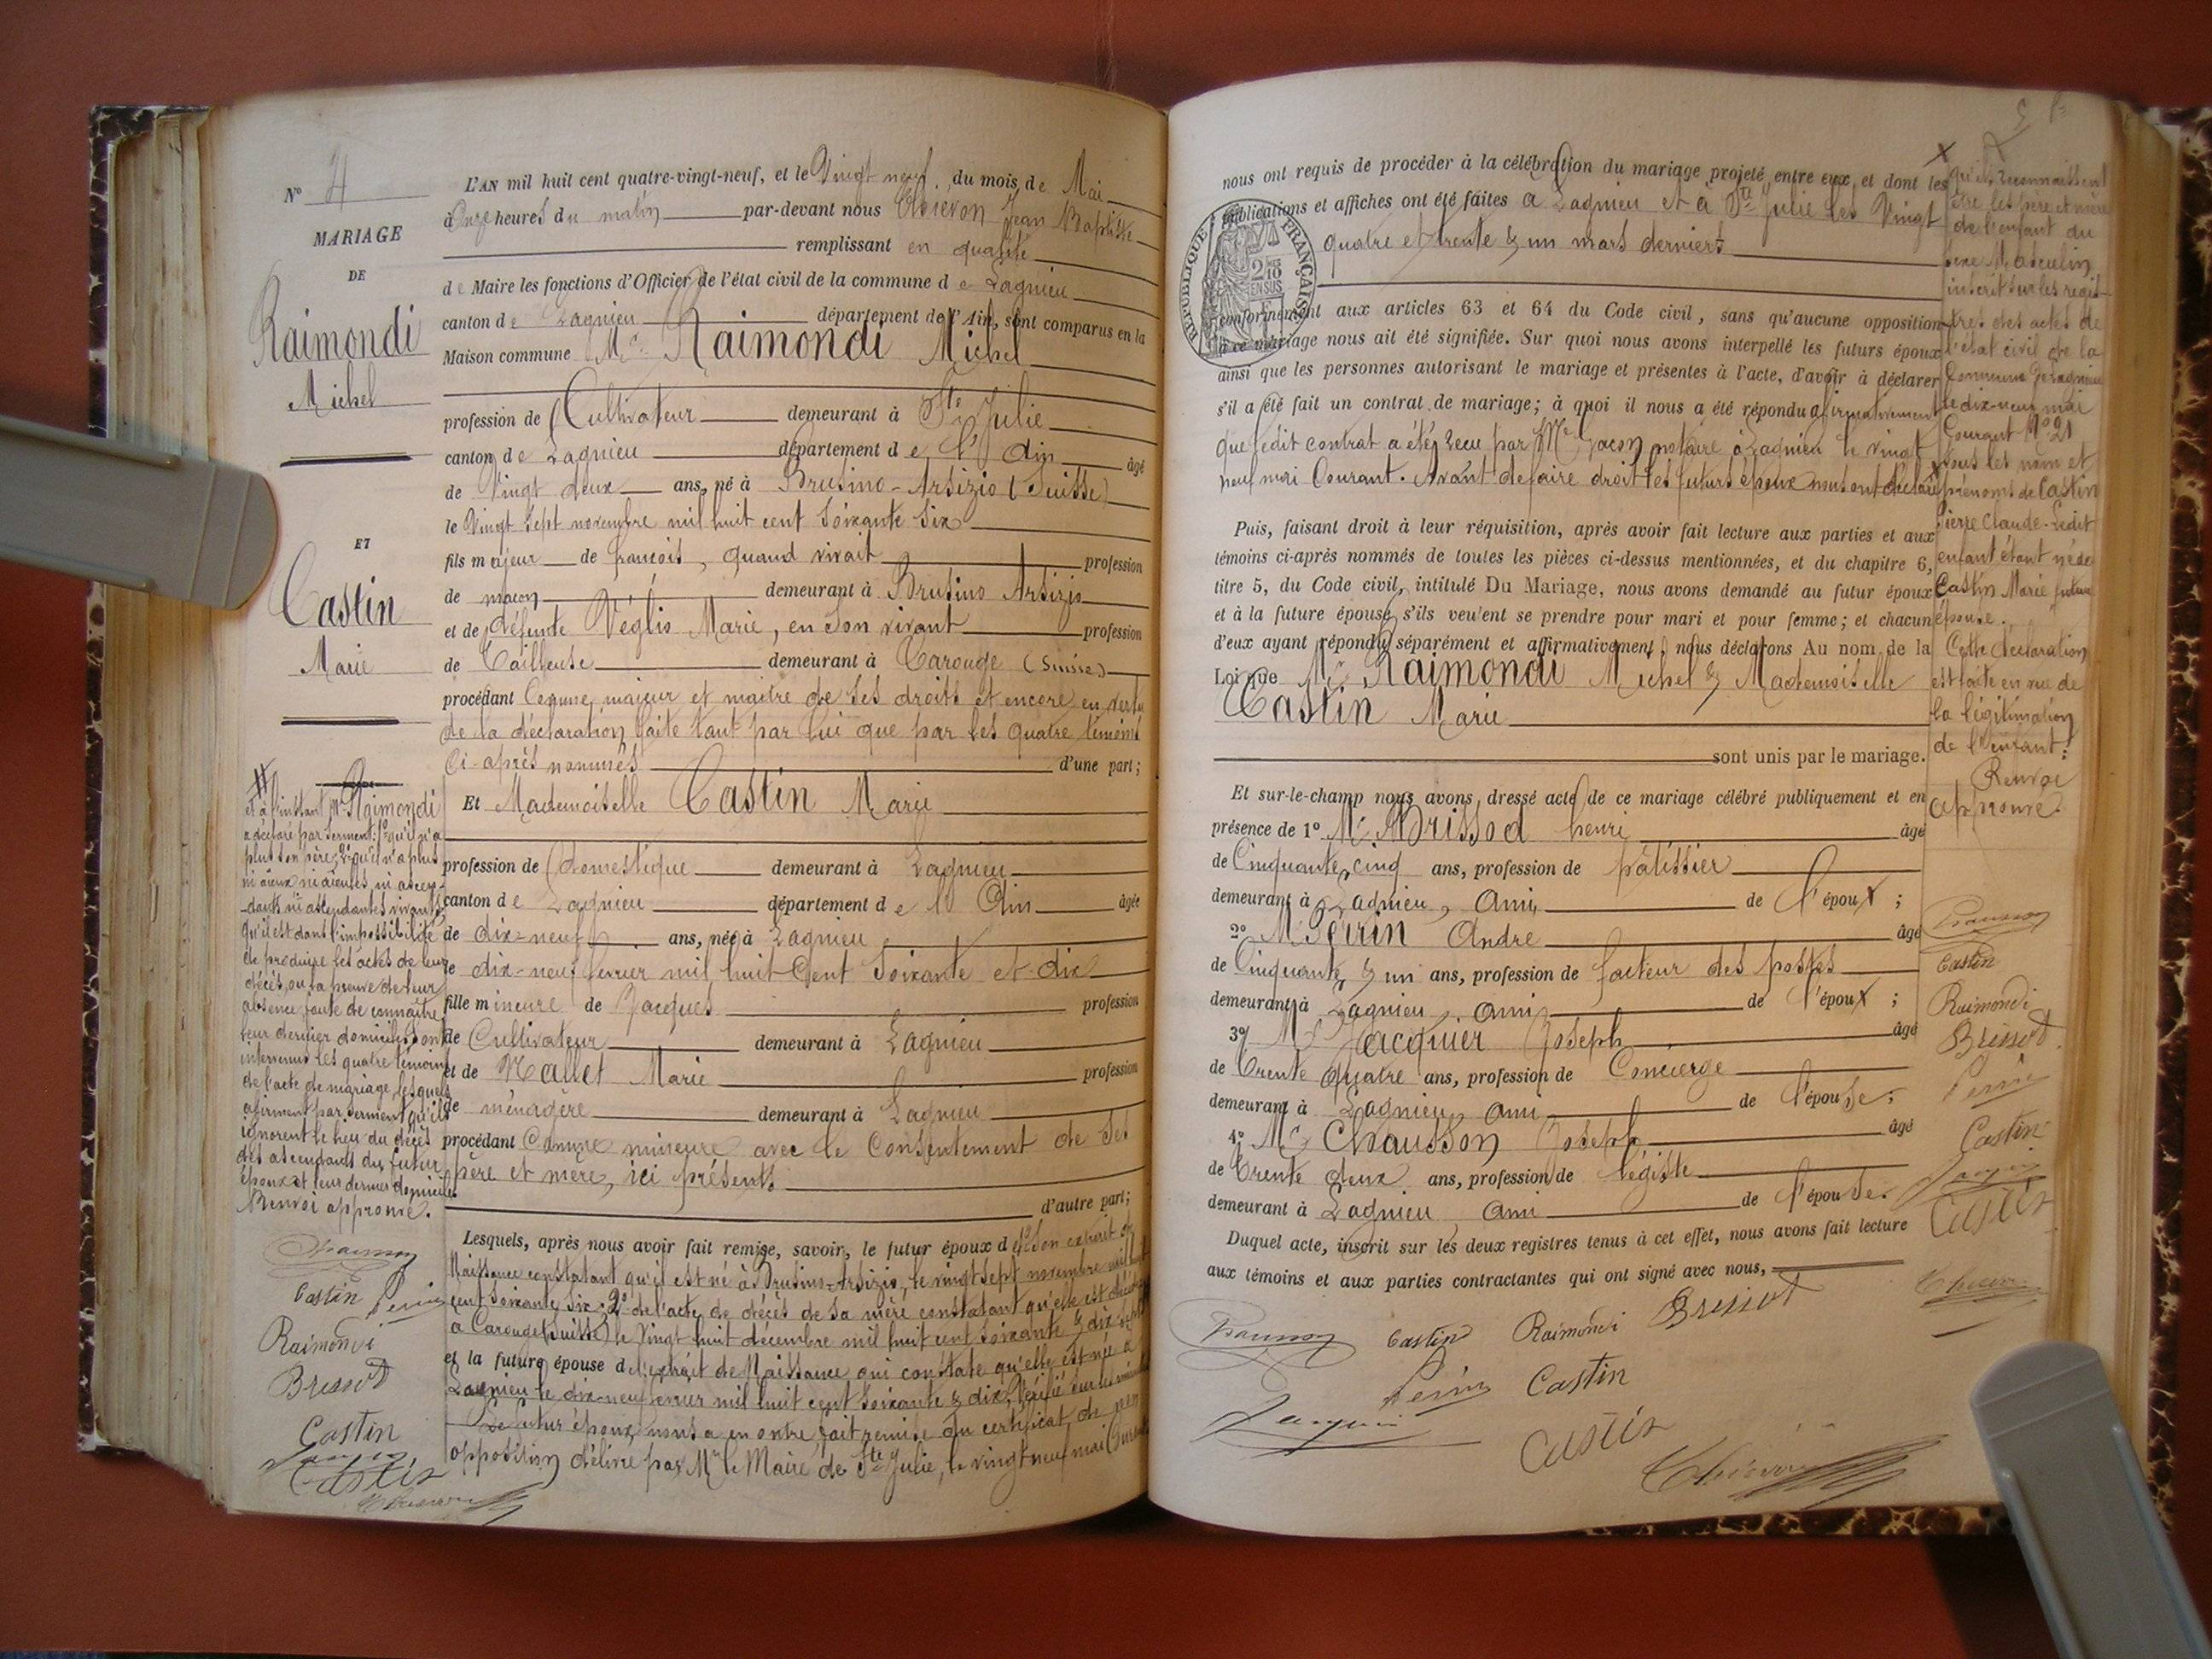 N° 4
MARIAGE
DE
Raimondi
Michel
ET
Castin
Marie
L'AN mil huit cent quatre-vingt-neuf, et le Vingt neuf du mois de Mai
à Onze heures du matin par-devant nous Jean Baptiste
remplissant en qualité
de Maire les fonctions d'Officier de l'état civil de la commune de Lagnieu
canton de Lagnieu département de l'Ain, sont comparus en la
Maison commune Mr Raimondi Michel
profession de Cultivateur demeurant à Ste Julie
canton de Lagnieu département de l'Ain âgé
de Vingt deux ans, né à Brusino-Arsizio (Suisse)
le Vingt sept novembre mil huit cent soixante six
fils majeur de françois, quand vivait profession
de maçon demeurant à Brusino Arsizio
et de défunte Véglio Marie, en son vivant profession
de Tailleuse demeurant à Carouge (Suisse)
procédant Comme majeur et maitre de ses droits et encore en vertu
de la déclaration faite tant par lui que par les quatre témoins
Ci-après nommés d'une part;
Et Mademoiselle Castin Marie
profession de Domestique demeurant à Lagnieu
canton de Lagnieu département de l'Ain âgée
de dix-neuf ans, née à Lagnieu
le dix-neuf fevrier mil huit Cent soixante et dix
fille mineure de Jacques profession
de Cultivateur demeurant à Lagnieu
et de Mallet Marie profession
de ménagère demeurant à Lagnieu
procédant Comme mineure avec le Consentement de ses
père et mère, ici présents
d'autre part;
Lesquels, après nous avoir fait remise, savoir, le futur époux de 1° Son extrait de
Naissance constatant qu'il est né à Brusino-Arsizio, le vingt sept novembre mil huit
cent soixante six; 2° de l'acte de décès de sa mère constatant qu'elle est décédée
a Carouge (Suisse) le Vingt huit décembre mil huit cent soixante & dix sept
et la future épouse de l'extrait de Naissance qui constate qu'elle est née à
Lagnieu le dix-neuf fevrier mil huit cent soixante & dix, Vérifié sur les
Le futur époux nous a en outre fait remise du certificat de non
opposition délivré par Mr le Maire de Ste Julie, le vingt neuf mai Courant
et à l'instant Mr Raimondi
a déclaré par serment: 1° qu'il n'a
plus son père; 2° qu'il n'a plus
ni aieux ni aieules, ni ascen-
dants ni ascendantes vivants,
qu'il est dans l'impossibilité
de produire les actes de leur
décès, ou la preuve de leur
absence, faute de connaître
leur dernier domicile; sont
intervenus les quatre témoins
de l'acte de mariage, lesquels
afirment par serment qu'ils
ignorent le lieu du décès
des ascendants du futur
époux et leur dernier domicile
Renvoi approuvé.
Chausson
Castin Perrin
Raimondi
Brissot
Castin
Castin
nous ont requis de procéder à la célébration du mariage projeté entre eux, et dont les
publications et affiches ont été faites à Lagnieu et à Ste Julie les Vingt
quatre et trente & un mars derniers
conformément aux articles 63 et 64 du Code civil, sans qu'aucune opposition
à ce mariage nous ait été signifiée. Sur quoi nous avons interpellé les futurs époux
ainsi que les personnes autorisant le mariage et présentes à l'acte, d'avoir à déclarer
s'il a été fait un contrat de mariage; à quoi il nous a été répondu afirmativement
que ledit contrat a été reçu par Me notaire à Lagnieu le vingt
neuf mai Courant. Avant de faire droit les futurs époux nous ont déclaré
Puis, faisant droit à leur réquisition, après avoir fait lecture aux parties et aux
témoins ci-après nommés de toutes les pièces ci-dessus mentionnées, et du chapitre 6,
titre 5, du Code civil, intitulé Du Mariage, nous avons demandé au futur époux
et à la future épouse s'ils veulent se prendre pour mari et pour femme; et chacun
d'eux ayant répondu séparément et affirmativement, nous déclarons Au nom de la
Loi que Mr Raimondi Michel & Mademoiselle
Castin Marie
sont unis par le mariage.
Et sur-le-champ nous avons dressé acte de ce mariage célébré publiquement et en
présence de 1° Mr Brissod henri âgé
de Cinquante cinq ans, profession de pâtissier
demeurant à Lagnieu, Ami de l'époux;
2° Mr Perrin André âgé
de Cinquante & un ans, profession de facteur des postes
demeurant à Lagnieu, ami de l'époux;
3° Mr Jacquier Joseph âgé
de Trente Quatre ans, profession de Concierge
demeurant à Lagnieu, ami de l'épouse;
4° Mr Chausson Joseph âgé
de Trente deux ans, profession de légiste
demeurant à Lagnieu, ami de l'épouse.
Duquel acte, inscrit sur les deux registres tenus à cet effet, nous avons fait lecture
aux témoins et aux parties contractantes qui ont signé avec nous,
Chausson Castin Raimondi Brissot
Perrin Castin
Castin
qu'ils reconnaissent
être les père et mère
de l'enfant du
sexe Masculin
inscrit sur les regis-
tres des actes de
l'état civil de la
Commune de Lagnieu
le dix-neuf mai
Courant N° 21
sous les nom et
prénoms de Castin
Pierre Claude. Ledit
enfant étant né de
Castin Marie future
épouse.
Cette déclaration
est faite en vue de
la légitimation
de l'enfant:
Renvoi
approuvé.
Chausson
Castin
Raimondi
Brissot
Perrin
Castin
Castin
RÉPUBLIQUE FRANÇAISE
2/10 EN SUS